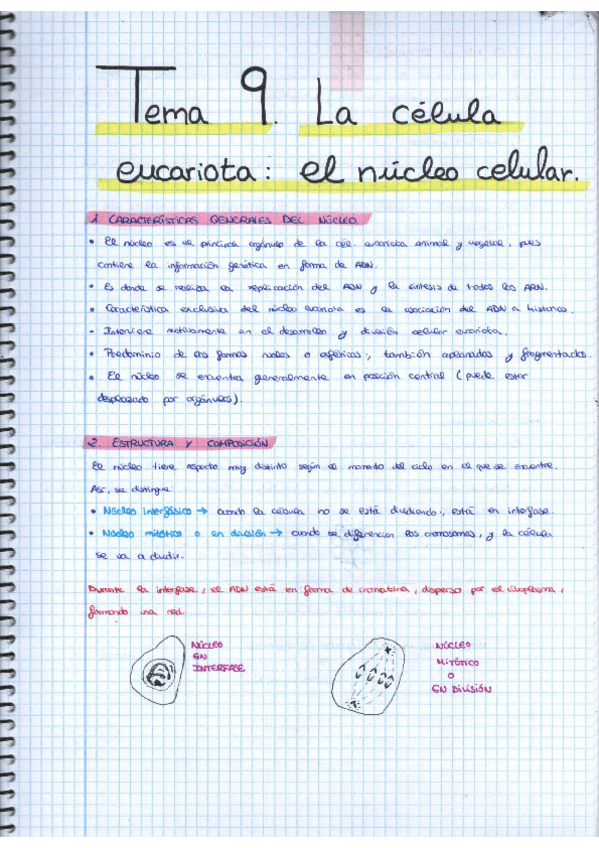 Tema 9. La célula
eucariota: el núcleo celular.
1. CARACTERÍSTICAS GENERALES DEL NÚCLEO
• El núcleo es el principal orgánulo de la cél. eucariota animal y vegetal, pues
contiene la información genética en forma de ADN.
• Es donde se realiza la replicación del ADN y la síntesis de todos los ARN.
• Característica exclusiva del núcleo eucariota es la asociación del ADN a histonas.
• Interviene activamente en el desarrollo y división celular eucariota.
• Predominio de las formas ovales o esféricas; también aplanadas y fragmentadas.
• El núcleo se encuentra generalmente en posición central (puede estar
desplazado por orgánulos).
2. ESTRUCTURA Y COMPOSICIÓN
El núcleo tiene aspecto muy distinto según el momento del ciclo en el que se encuentre.
Así, se distingue:
• Núcleo interfásico → cuando la célula no se está dividiendo; está en interfase.
• Núcleo mitótico o en división → cuando se diferencian los cromosomas, y la célula
se va a dividir.
Durante la interfase, el ADN está en forma de cromatina, disperso por el citoplasma,
formando una red.
NÚCLEO
EN
INTERFASE
NÚCLEO
MITÓTICO
O
EN DIVISIÓN